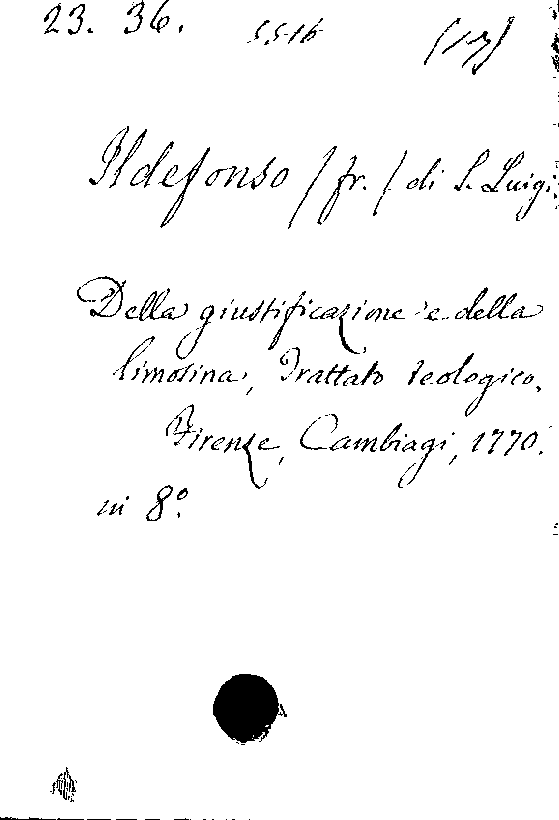 23. 36. 5.5.16 (17)
Ildefonso / fr. / di S. Luigi.
Della giustificazione e della
limosina, Trattato teologico.
Firenze, Cambiagi, 1770.
in 8º.